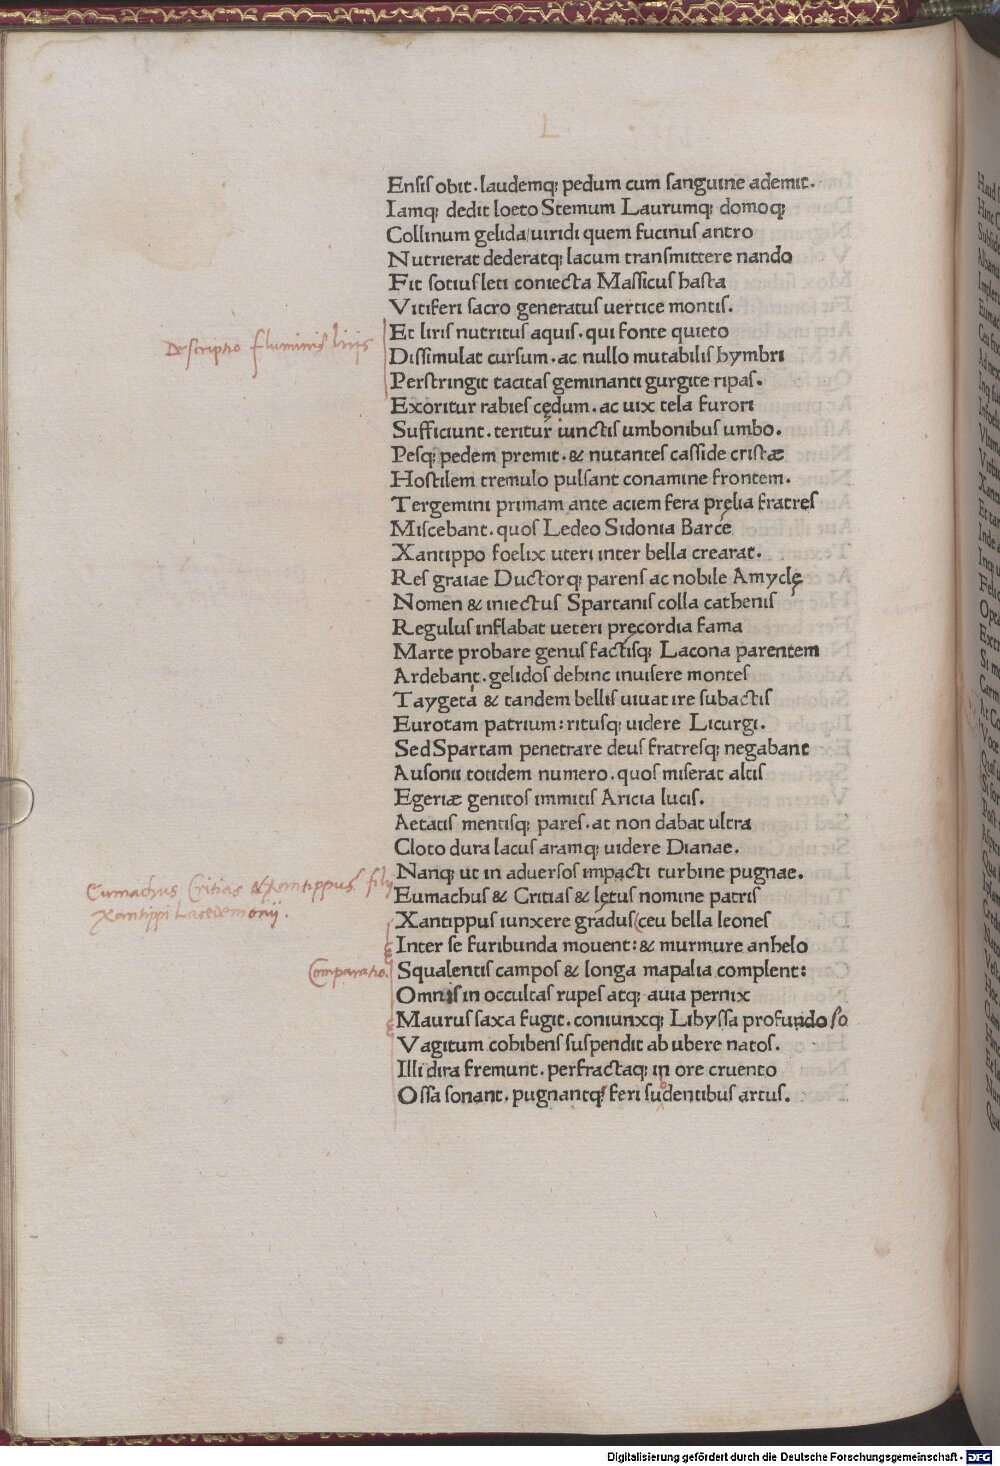 L
Ensis obit. laudemq; pedum cum sanguine ademit.
Iamq; dedit loeto Stemum Laurumq; domoq;
Collinum gelida/uiridi quem fucinus antro
Nutrierat dederatq; lacum transmittere nando
Fit sotius leti coniecta Massicus hasta
Vitiferi sacro generatus uertice montis.
Et liris nutritus aquis. qui fonte quieto
Descriptio fluminis liris
Dissimulat cursum. ac nullo mutabilis hymbri
Perstringit tacitas geminanti gurgite ripas.
Exoritur rabies cędum. ac uix tela furori
Sufficiunt. teritur iunctis umbonibus umbo.
Pesq; pedem premit. & nutantes casside cristæ
Hostilem tremulo pulsant conamine frontem.
Tergemini primam ante aciem fera pręlia fratres
Miscebant. quos Ledeo Sidonia Barce
Xantippo foelix uteri inter bella crearat.
Res graiae Ductorq; parens ac nobile Amyclę
Nomen & iniectus Spartanis colla cathenis
Regulus inflabat ueteri pręcordia fama
Marte probare genus factisq; Lacona parentem
Ardebant. gelidos dehinc inuisere montes
Taygeta & tandem bellis uiuat ire subactis
Eurotam patrium: ritusq; uidere Licurgi.
Sed Spartam penetrare deus fratresq; negabant
Ausonii totidem numero. quos miserat altis
Egeriæ genitos immitis Aricia lucis.
Aetatis mentisq; pares. at non dabat ultra
Cloto dura lacus aramq; uidere Dianae.
Nanq; ut in aduersos impacti turbine pugnae.
Eumachus Critias & Xantippus filij
Xantippi Lacedemonij.
Eumachus & Critias & lętus nomine patris
Xantippus iunxere gradus (ceu bella leones
Inter se furibunda mouent: & murmure anhelo
Comparatio.
Squalentis campos & longa mapalia complent:
Omnis in occultas rupes atq; auia pernix
Maurus saxa fugit. coniunxq; Libyssa profundo so
Vagitum cohibens suspendit ab ubere natos.
Illi dira fremunt. perfractaq; in ore cruento
Ossa sonant. pugnantq; feri sudentibus artus.
Digitalisierung gefördert durch die Deutsche Forschungsgemeinschaft - DFG